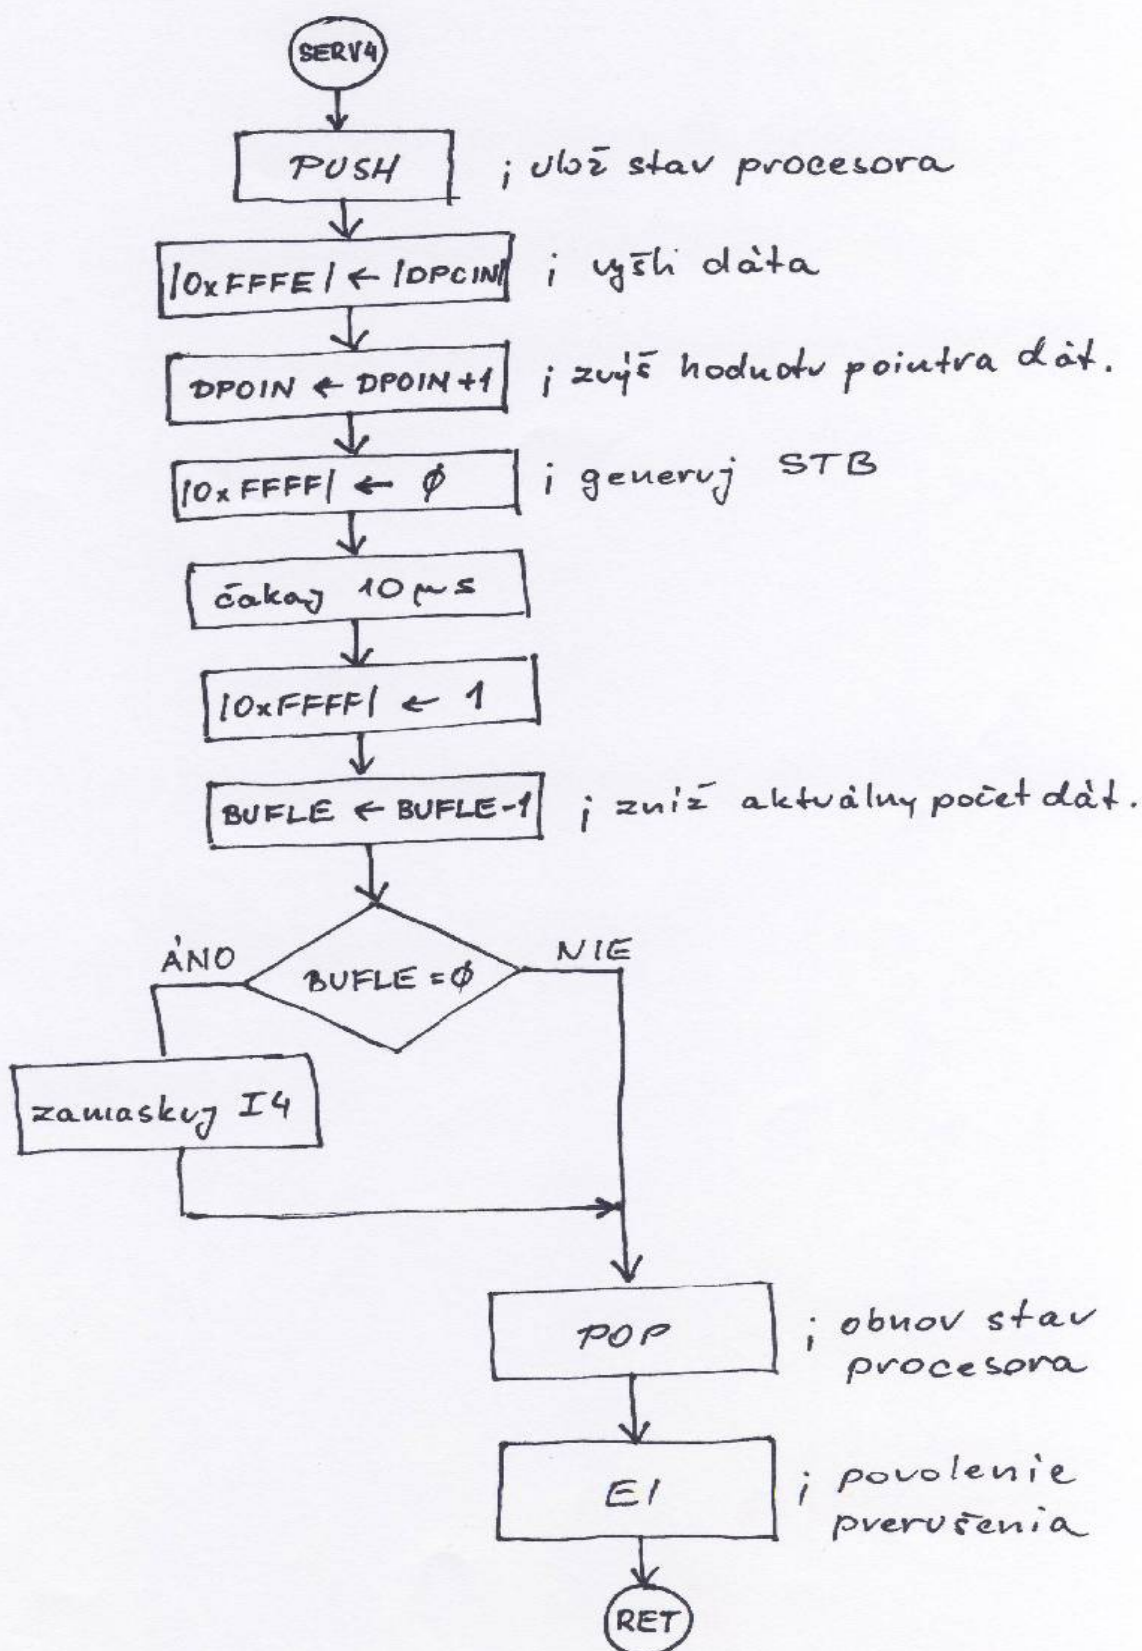 SERV4
PUSH ; ulož stav procesora
|0xFFFE| ← |DPCIN| ; vyšli dáta
DPOIN ← DPOIN+1 ; zvýš hodnotu pointra dát.
|0xFFFF| ← ϕ ; generuj STB
čakaj 10 μs
|0xFFFF| ← 1
BUFLE ← BUFLE-1 ; zníž aktuálny počet dát.
ÁNO BUFLE = ϕ NIE
zamaskuj I4
POP ; obnov stav
procesora
EI ; povolenie
prerušenia
RET